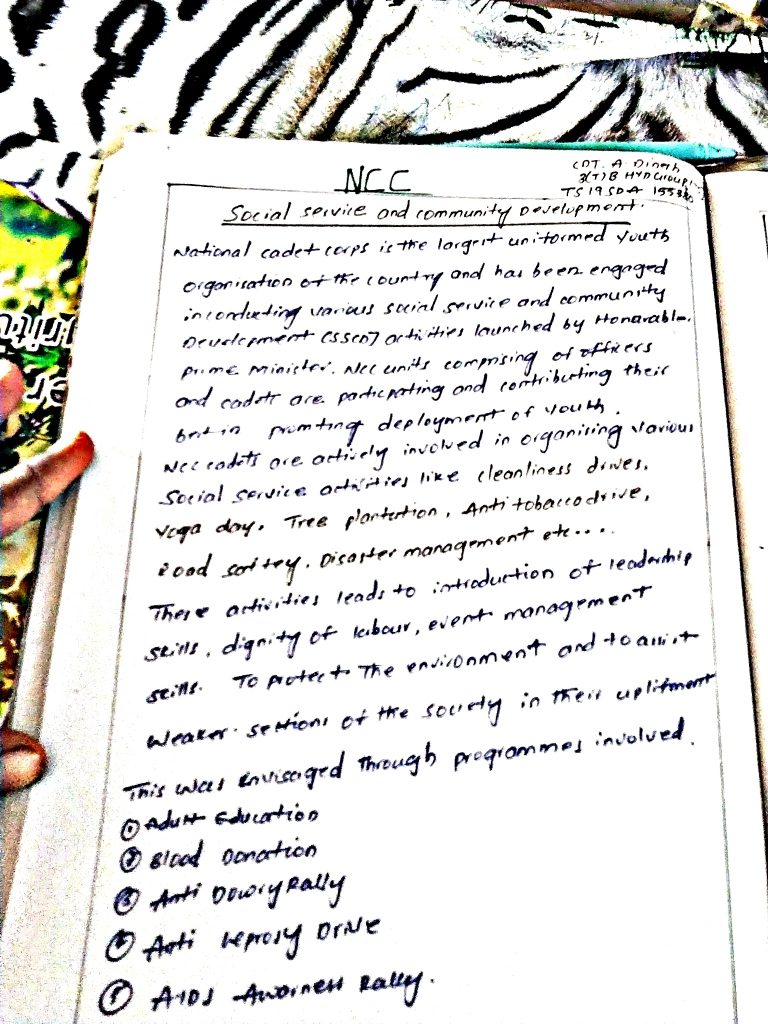 CDT. A Dinesh
3(T) B HYD Group
NCC
TS 19 SDA
Social service and community Development.
National cadet corps is the largest uniformed youth
organisation of the country and has been engaged
in conducting various social service and community
Development (SSCD) activities launched by Honarable
prime minister. NCC units comprising of officers
and cadets are participating and contributing their
best in promting deployment of youth.
NCC cadets are actively involved in organising various
Social Service activities like cleanliness drives,
yoga day, Tree plantation, Anti tobacco drive,
Road saftey, Disaster management etc....
These activities leads to introduction of leadership
skills, dignity of labour, event management
skills. To protect The environment and to assist
weaker sections of the society in their upliftment
This was envisaged through programmes involved.
① Adult Education
② Blood Donation
③ Anti Dowry Rally
④ Anti leprosy Drive
⑤ AIDS Awarness Rally.